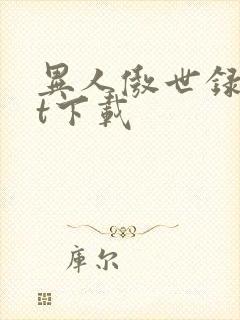 異人傲世録
t下載
库尔